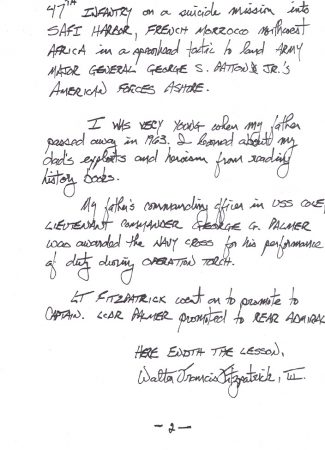 47TH INFANTRY on a suicide mission into
SAFI HARBOR, FRENCH MORROCO northwest
AFRICA in a spearhead tactic to land ARMY
MAJOR GENERAL GEORGE S. PATTON'S JR.'s
AMERICAN FORCES ASHORE.
I WAS VERY YOUNG when my father
passed away in 1963. I learned about my
dad's exploits and heroism from reading
history books.
My father's commanding officer in USS COLE,
LIEUTENANT COMMANDER GEORGE G. PALMER
was awarded the NAVY CROSS for his performance
of duty during OPERATION TORCH.
LT FITZPATRICK went on to promote to
CAPTAIN. LCDR PALMER promoted to REAR ADMIRAL
HERE ENDTH THE LESSON,
Walter Francis Fitzpatrick, III.
- 2 -